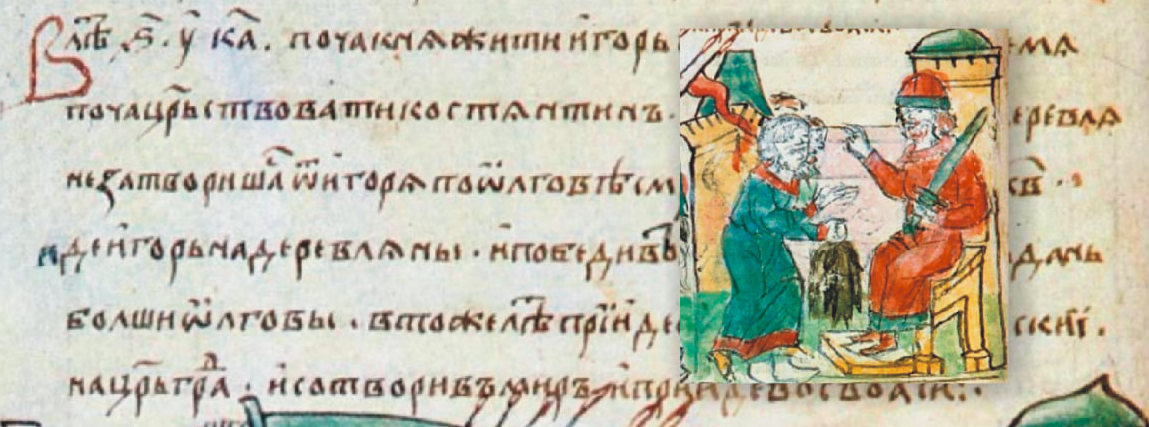 В лѣ ҂ѕ҃ у҃ к҃а. поча кнѧжити игорь
поча цр҃ьствовати костѧнтинъ.
не затвориша ѿ игорѧ по ѡлговѣ
иде игорь на деревлѧны · и победивъ дань
болши ѡлговы . в то же лѣ прїиде
на цр҃ьграⷣ · и сотворивъ миръ и прииде во своѧси :·